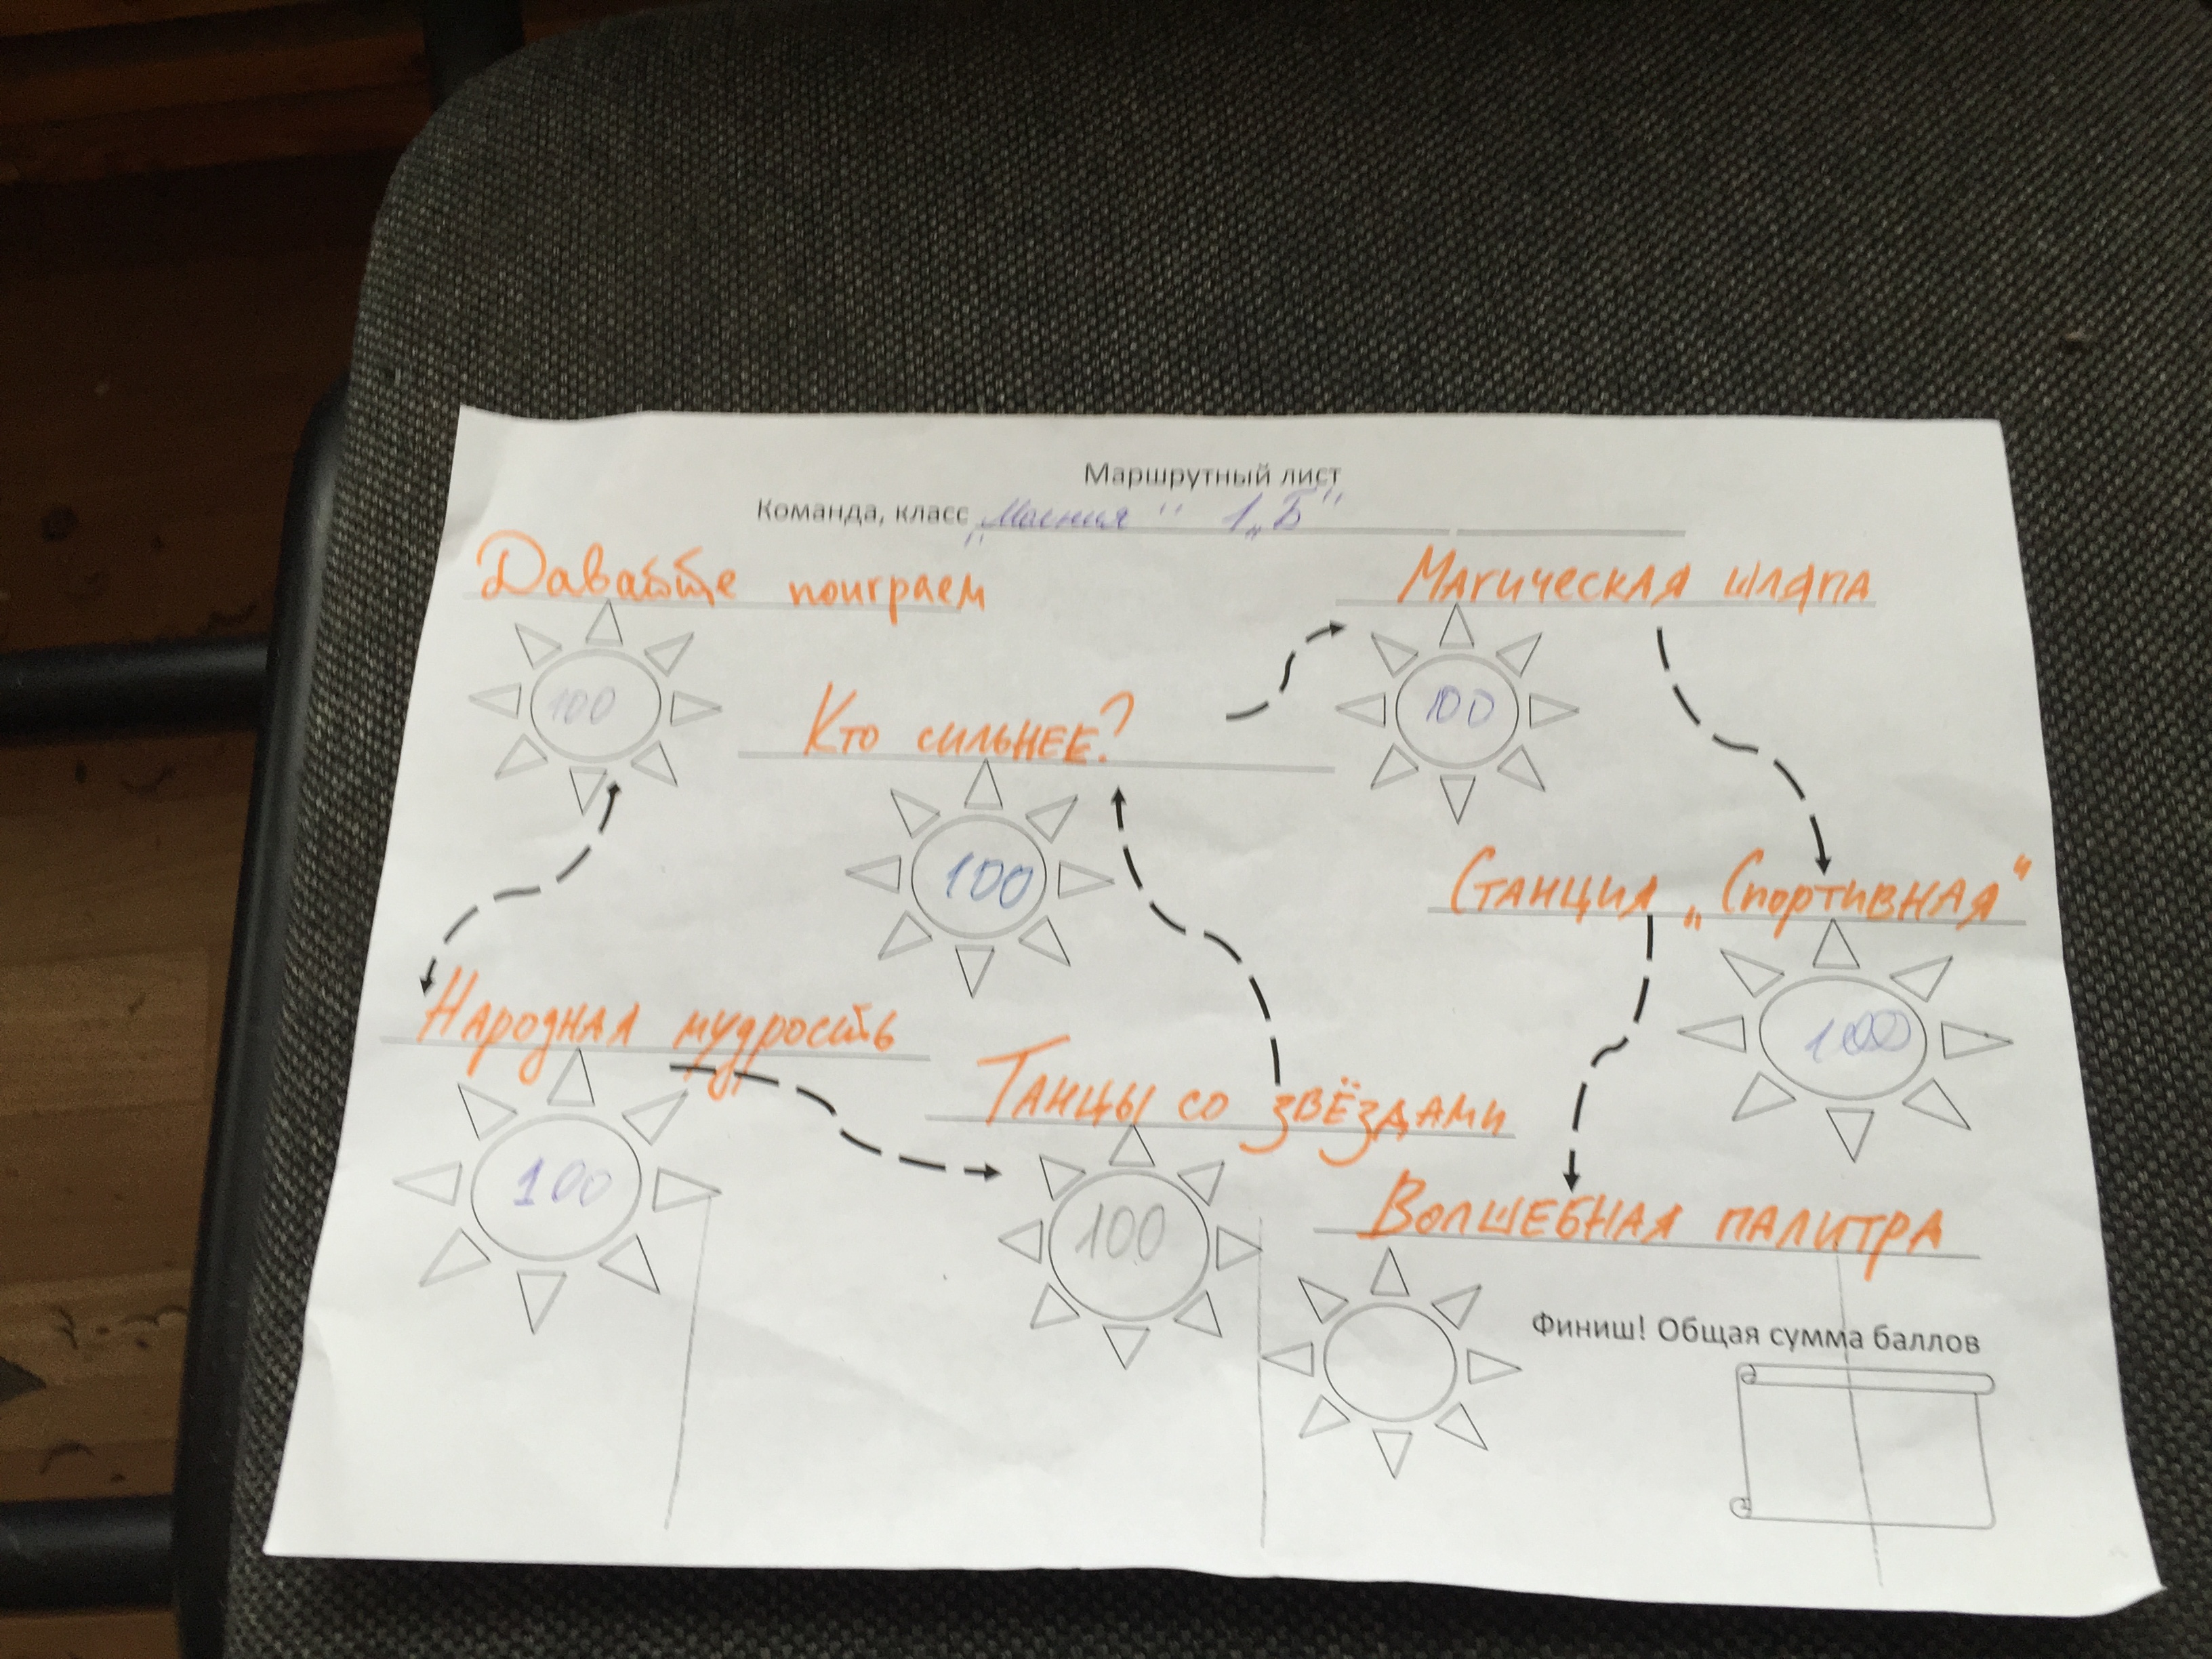 Маршрутный лист
Команда, класс „Магия" 1 „Б"
Давайте поиграем
100
Магическая шляпа
100
Кто сильнее?
100
Станция „Спортивная"
100
Народная мудрость
100
Танцы со звёздами
100
Волшебная палитра
Финиш! Общая сумма баллов